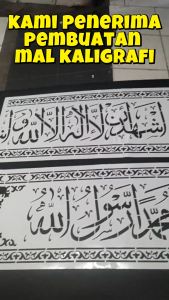 Kami Penerima
Pembuatan
mal Kaligrafi
اشهد ان لا اله الا الله
محمدا رسول الله